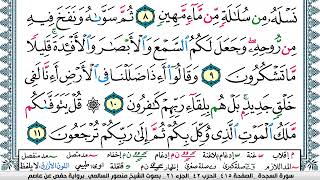 نَسْلَهُۥ مِن سُلَٰلَةٍ مِّن مَّآءٍ مَّهِينٍ ٨ ثُمَّ سَوَّىٰهُ وَنَفَخَ فِيهِ
مِن رُّوحِهِۦ وَجَعَلَ لَكُمُ ٱلسَّمْعَ وَٱلْأَبْصَٰرَ وَٱلْأَفْـِٔدَةَ قَلِيلًا
مَّا تَشْكُرُونَ ٩ وَقَالُوٓا۟ أَءِذَا ضَلَلْنَا فِى ٱلْأَرْضِ أَءِنَّا لَفِى
خَلْقٍ جَدِيدٍۭ بَلْ هُم بِلِقَآءِ رَبِّهِمْ كَٰفِرُونَ ١٠ قُلْ يَتَوَفَّىٰكُم
مَّلَكُ ٱلْمَوْتِ ٱلَّذِى وُكِّلَ بِكُمْ ثُمَّ إِلَىٰ رَبِّكُمْ تُرْجَعُونَ ١١
سورة السجدة الصفحة ٤١٥ الحزب ٤٢ الجزء ٢١ بصوت الشيخ منصور السالمي برواية حفص عن عاصم